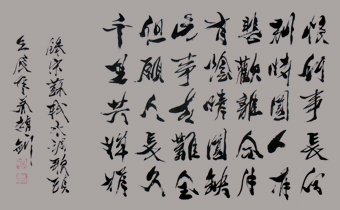 恨何事長向
別時圓人有
悲歡離合月
有陰晴圓缺
此事古難全
但願人長久
千里共嬋娟
錄宋蘇軾水調歌頭